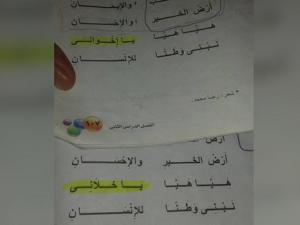 والإيمان
أرض الخير والإحسان
هيا هيا يا إخواني
نبني وطنًا للإنسان
* شعر: رضا محمد.
١٠٢ الفصل الدراسي الثاني
أرض
أرض الخير والإحسان
هيا هيا يا خلاني
نبني وطنًا للإنسان